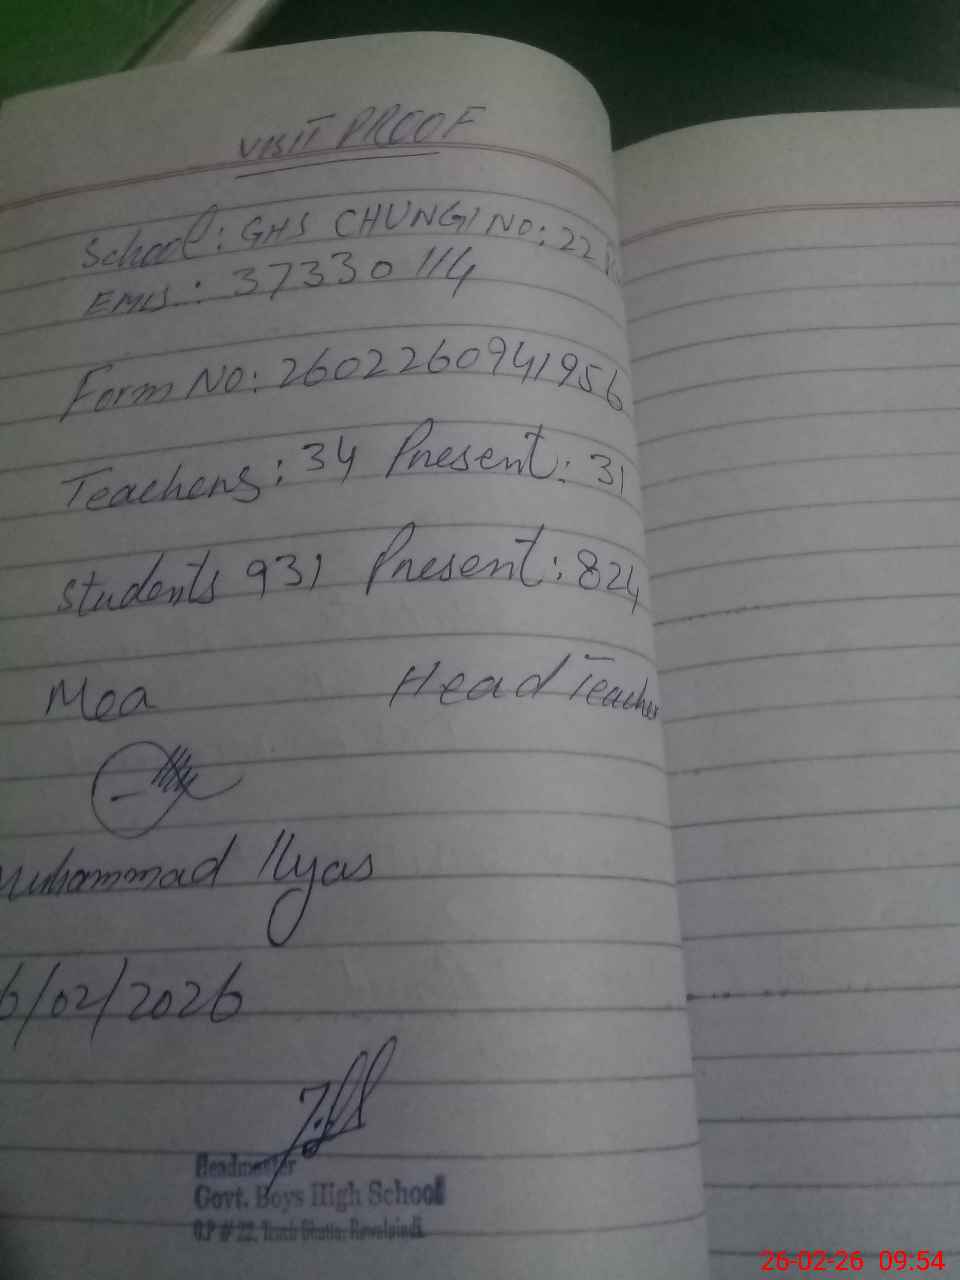 VISIT PROOF
School: GHS CHUNGI NO: 22
EMIS: 37330114
Form No: 2602260941956
Teachers: 34 Present: 31
students 931 Present: 824
Mea Head Teacher
Muhammad Ilyas
6/02/2026
Headmaster
Govt. Boys High School
O.P # 22, Rawalpindi
26-02-26 09.54